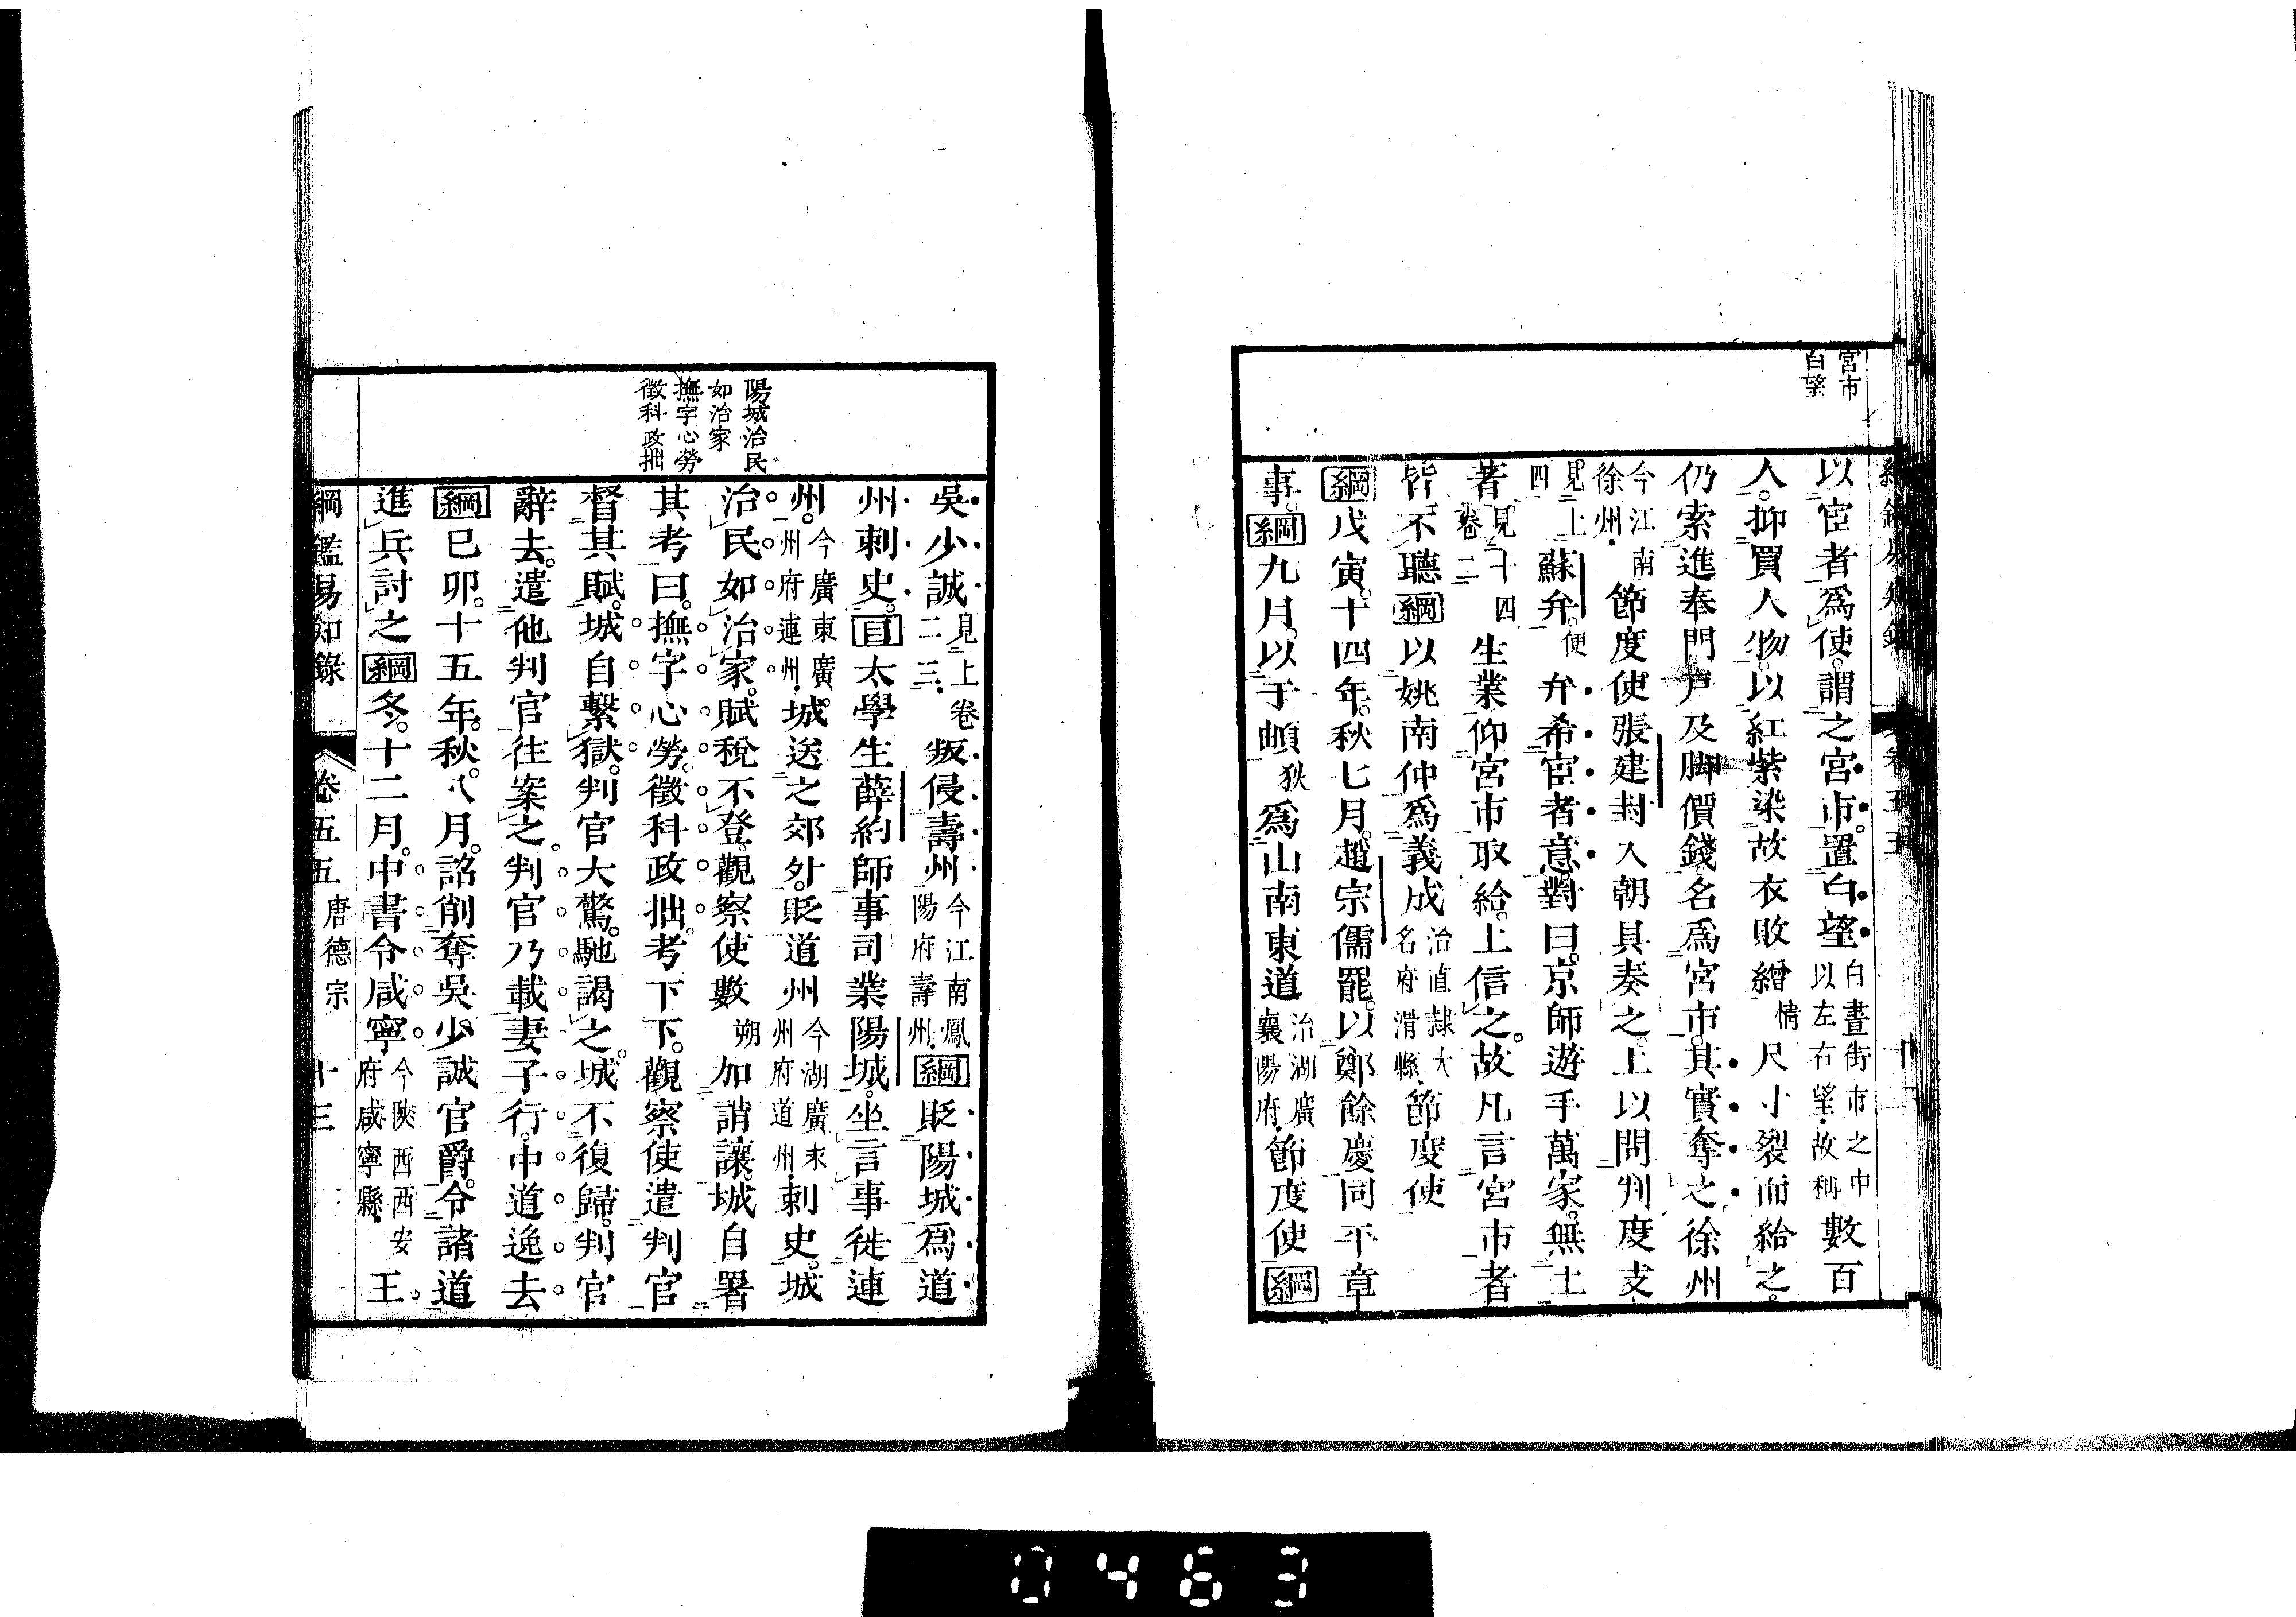 宮市
白望
以宦者爲使謂之宮市置白望白晝街市之中以左右望故稱數百
人抑買人物以紅紫染故衣敗繒情尺寸裂而給之
仍索進奉門戸及脚價錢名爲宮市其實奪之徐州
今江南徐州節度使張建封入朝具奏之上以問判度支
見上四蘇弁便弁希宦者意對曰京師遊手萬家無土
著見十四卷二生業仰宮市取給上信之故凡言宮市者
皆不聽綱以姚南仲爲義成治直隷大名府滑縣節度使
綱戊寅十四年秋七月趙宗儒罷以鄭餘慶同平章
事綱九月以于頔狄爲山南東道治湖廣襄陽府節度使綱
陽城治民
如治家
撫字心勞
徵科政拙
吳少誠見上卷二三叛侵壽州今江南鳳陽府壽州綱貶陽城爲道
州刺史目太學生薛約師事司業陽城坐言事徙連
州今廣東廣州府連州城送之郊外貶道州今湖廣永州府道州刺史城
治民如治家賦稅不登觀察使數朔加誚讓城自署
其考曰撫字心勞徵科政拙考下下觀察使遣判官
督其賦城自繫獄判官大驚馳謁之城不復歸判官
辭去遣他判官往案之判官乃載妻子行中道逸去
綱已卯十五年秋八月詔削奪吳少誠官爵令諸道
進兵討之綱冬十二月中書令咸寧今陝西西安府咸寧縣王
綱鑑易知錄 卷五五 唐德宗 十三
0463